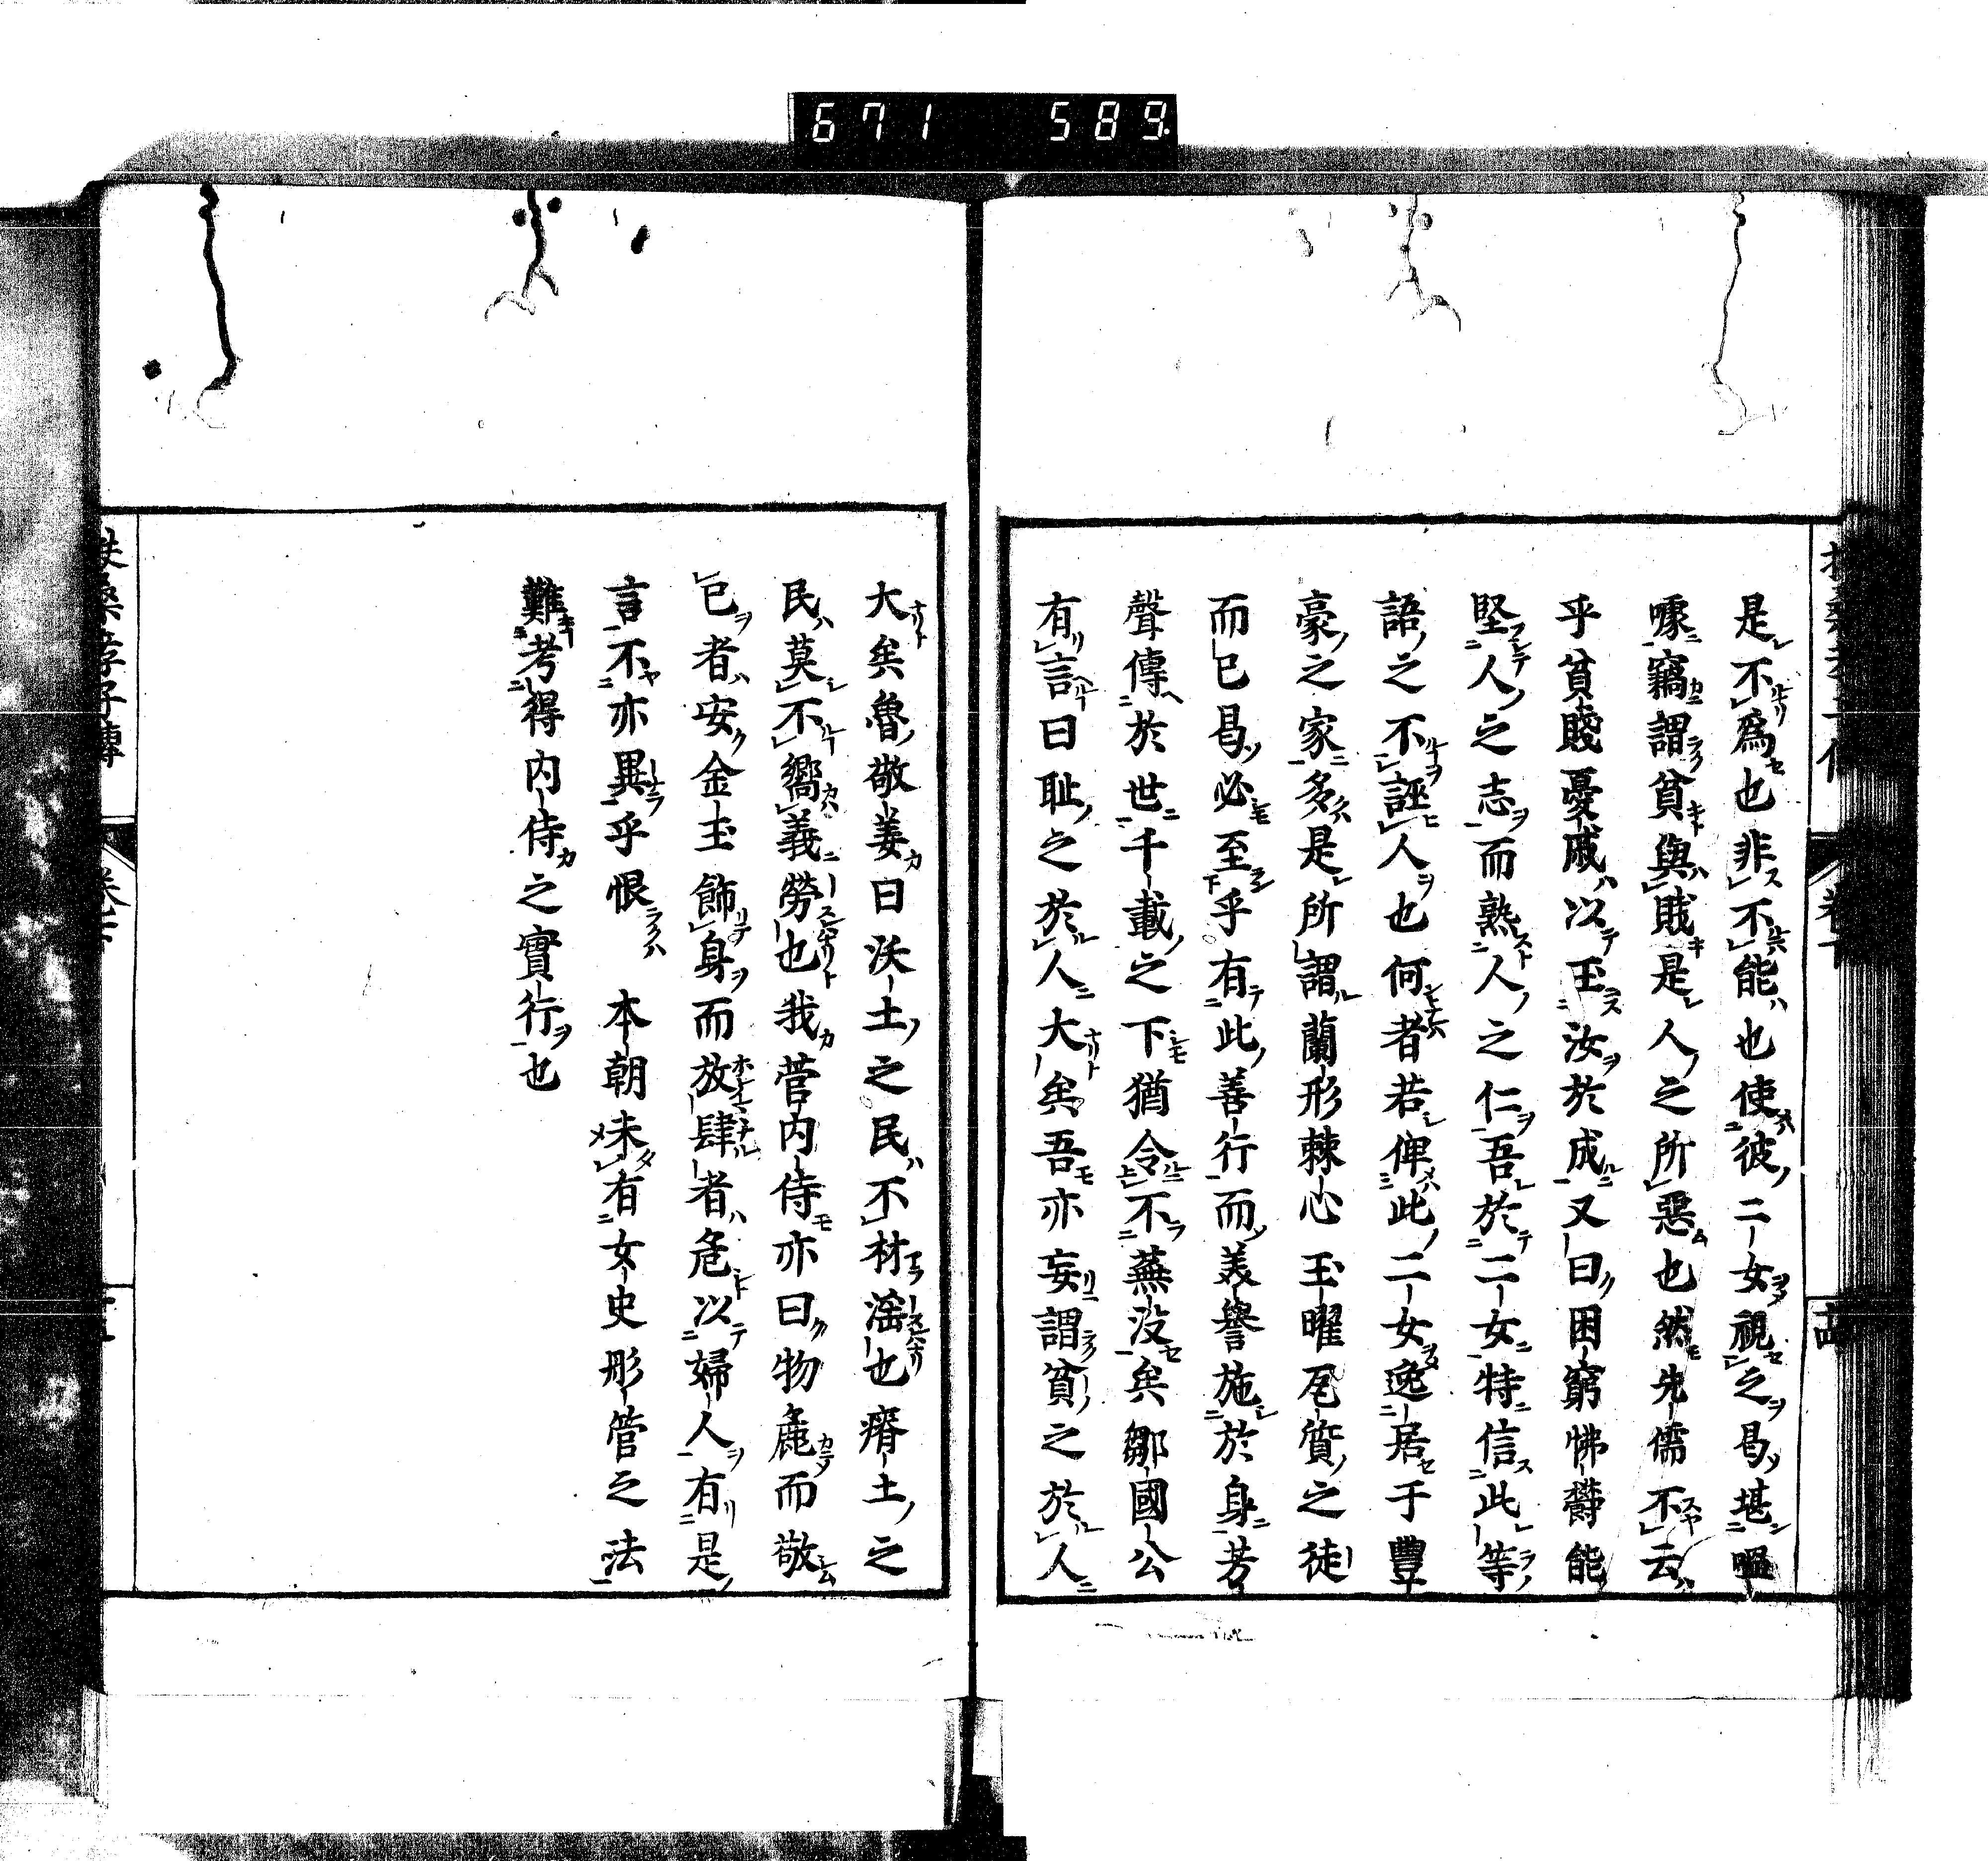 671 589
是不爲也非不能也使彼二女視之曷堪嗢
噱竊謂貧與賎是人之所惡也然先儒不云
乎貧賤憂戚以玉汝於成又曰困窮怫鬱能
堅人之志而熟人之仁吾於二女特信此等
語之不誣人也何者若俾此二女逸居于豐
豪之家多是所謂蘭形棘心玉曜瓦質之徒
而已曷必至乎有此善行而美譽施於身芳
聲傳於世千載之下猶令不蕪没矣鄒國公
有言曰耻之於人大矣吾亦妄謂貧之於人
大矣魯敬姜曰沃土之民不材滛也瘠土之
民莫不嚮義勞也我菅内侍亦曰物麁而敬
已者安金玉飾身而放肆者危以婦人有是
言不亦異乎恨 本朝未有女史彤管之法
難考得内侍之實行也
扶桑孝子傳